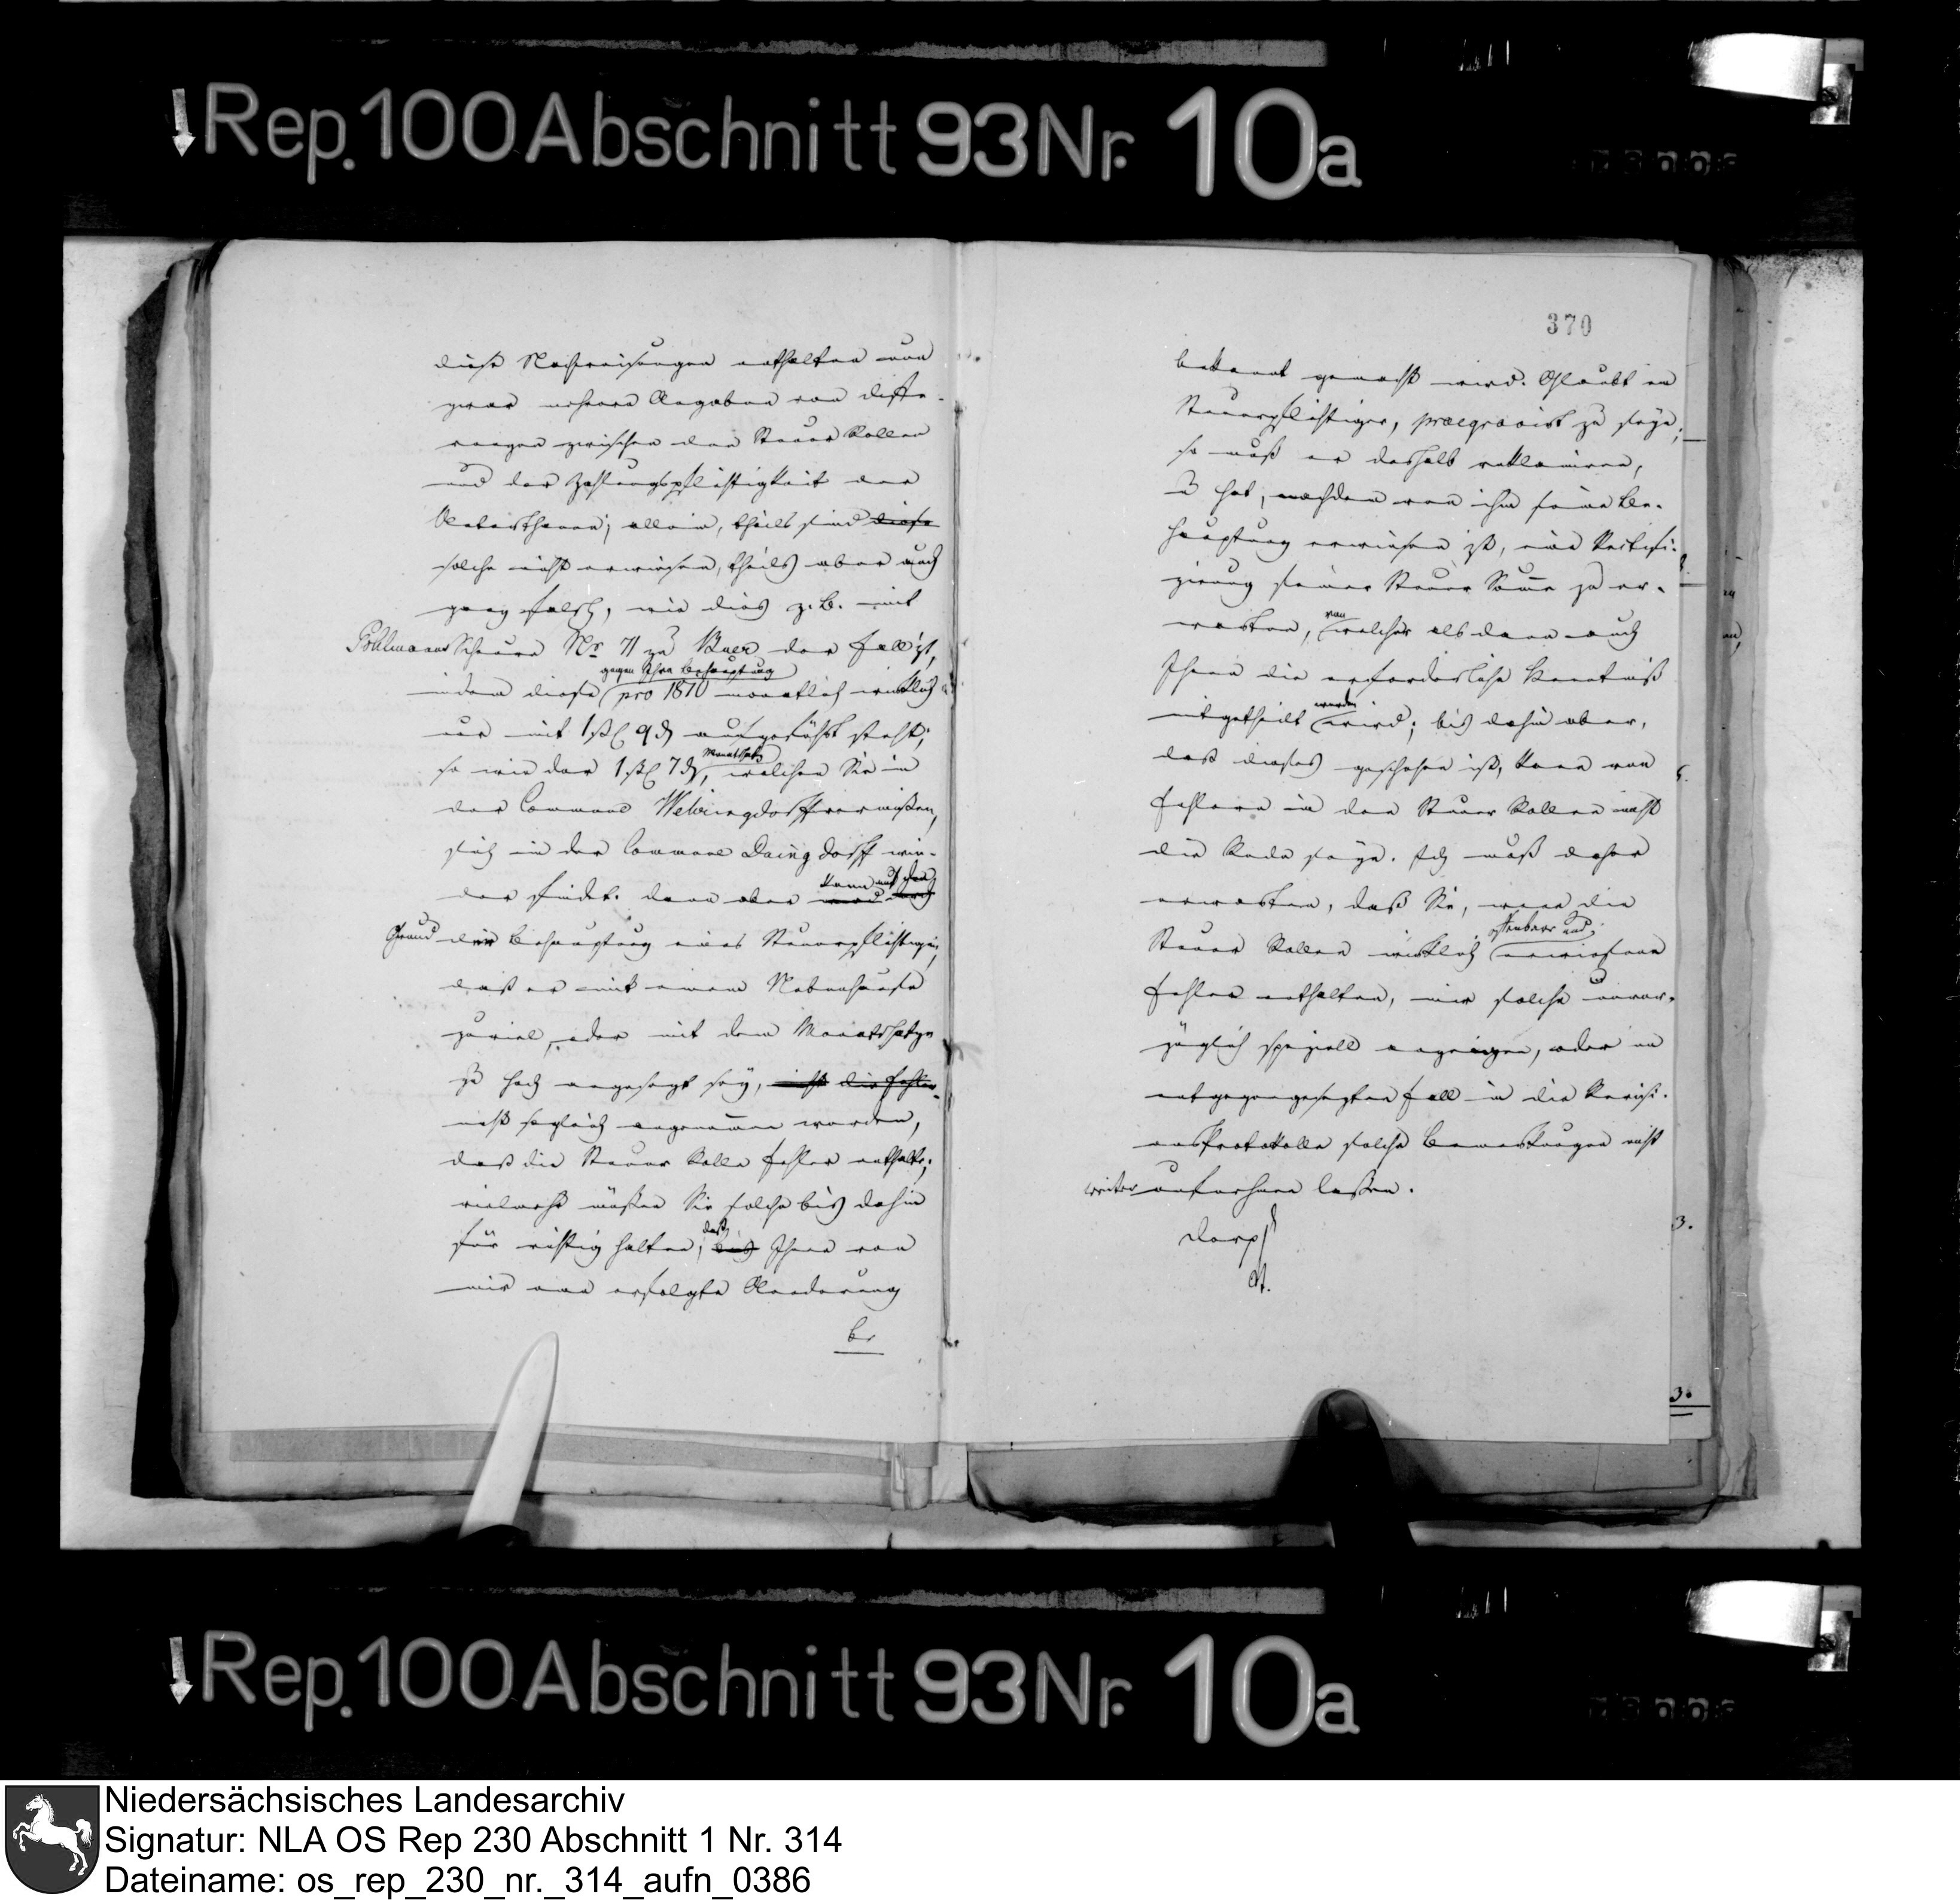 Rep. 100 Abschnitt 93 Nr. 10a
diese Nachweisungen enthalten nun
zwar mehrere Angaben von Diffe-
renzen zwischen den Steuer Rollen
und der Zahlungspflichtigkeit der
allein, theils sind diese
solche nicht erwiesen, theils aber auch
ganz falsch, wie dies z. B. mit
Pöttmanns Scheuer No 71 zu Buer der Fall ist,
gegen Ihre Behauptung
indem diese pro 1810 monatlich wirklich
nur mit 1 ßl 9 d aufgeführt steht;
Monatschatz
so wie der 1 ßl 7 d, welchen Sie in
der Commune Wehringdorff vermißen,
sich in der Commune Daingdorff wie-
der findet. Dann aber
kann auf den
Grund der Behauptung eines Steuerpflichtigen,
daß er mit einem Nebenhause
zuviel, oder mit dem Monatschatze
zu hoch angesetzt sey, nicht die Fehler
nicht sogleich angenommen werden,
daß die Steuer Rolle Fehler enthalte;
vielmehr müßen Sie solche bis dahin
daß
für richtig halten, bis Ihnen von
mir eine erfolgte Aenderung
be
370
bekannt gemacht wird. Glaubt ein
Steuerpflichtiger, praegravirt zu seyn,
so muß er deshalb reklamiren,
u hat, nachdem von ihm seine Be-
hauptung erwiesen ist, eine Rectifi-
zirung seiner Steuer Summe zu er-
von
warten, welcher als dann auch
Ihnen die erforderliche Kenntniß
werden
mitgetheilt wird; bis dahin aber,
daß dieses geschehen ist, kann von
Fehlern in den Steuer Rollen nicht
die Rede seyn. Ich muß daher
erwarten, daß Sie, wenn die
offenbare und
Steuer Rollen wirklich erwiesene
Fehler enthalten, mir solche unver-
züglich speziell anzeigen, oder im
entgegengesetzten Fall in die Revisi-
onsProtokolle solche Bemerkungen nicht
weiter aufnehmen laßen.
3.
3.
Rep. 100 Abschnitt 93 Nr. 10a
Niedersächsisches Landesarchiv
Signatur: NLA OS Rep 230 Abschnitt 1 Nr. 314
Dateiname: os_rep_230_nr._314_aufn_0386